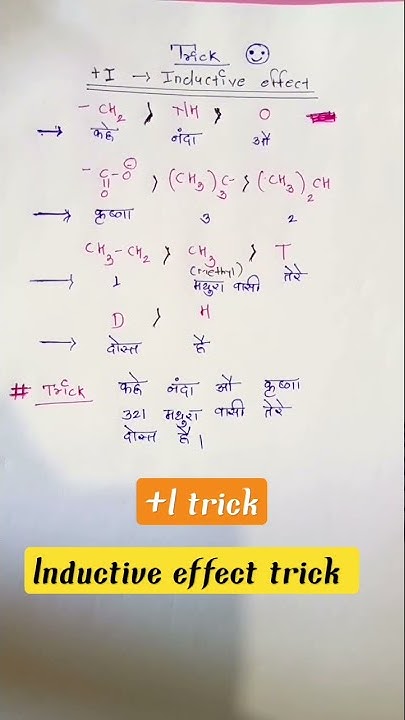 Trick
+I → Inductive effect
- CH₂ > NH > O
→ कहे नंदा औ
- C - O⊖ > (CH₃)₃C- > (CH₃)₂CH
|| O
→ कृष्णा 3 2
CH₃-CH₂ > CH₃ > T
(methyl)
→ 1 मथुरा वासी तेरे
D > H
→ दोस्त है
# Trick कहे नंदा औ कृष्णा
321 मथुरा वासी तेरे
दोस्त है ।
+I trick
Inductive effect trick